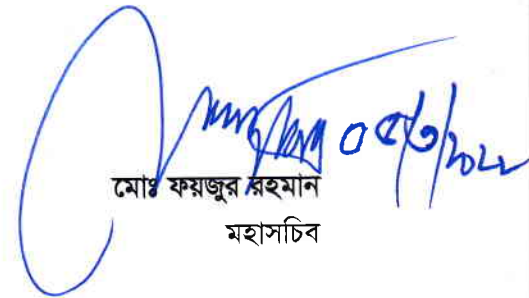 ০৫/৩/২০২২
মোঃ ফয়জুর রহমান
মহাসচিব